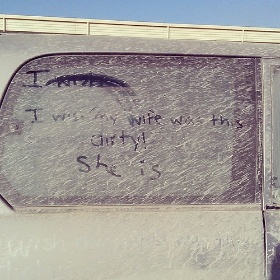 I
I wish my wife was this
dirty!
She is